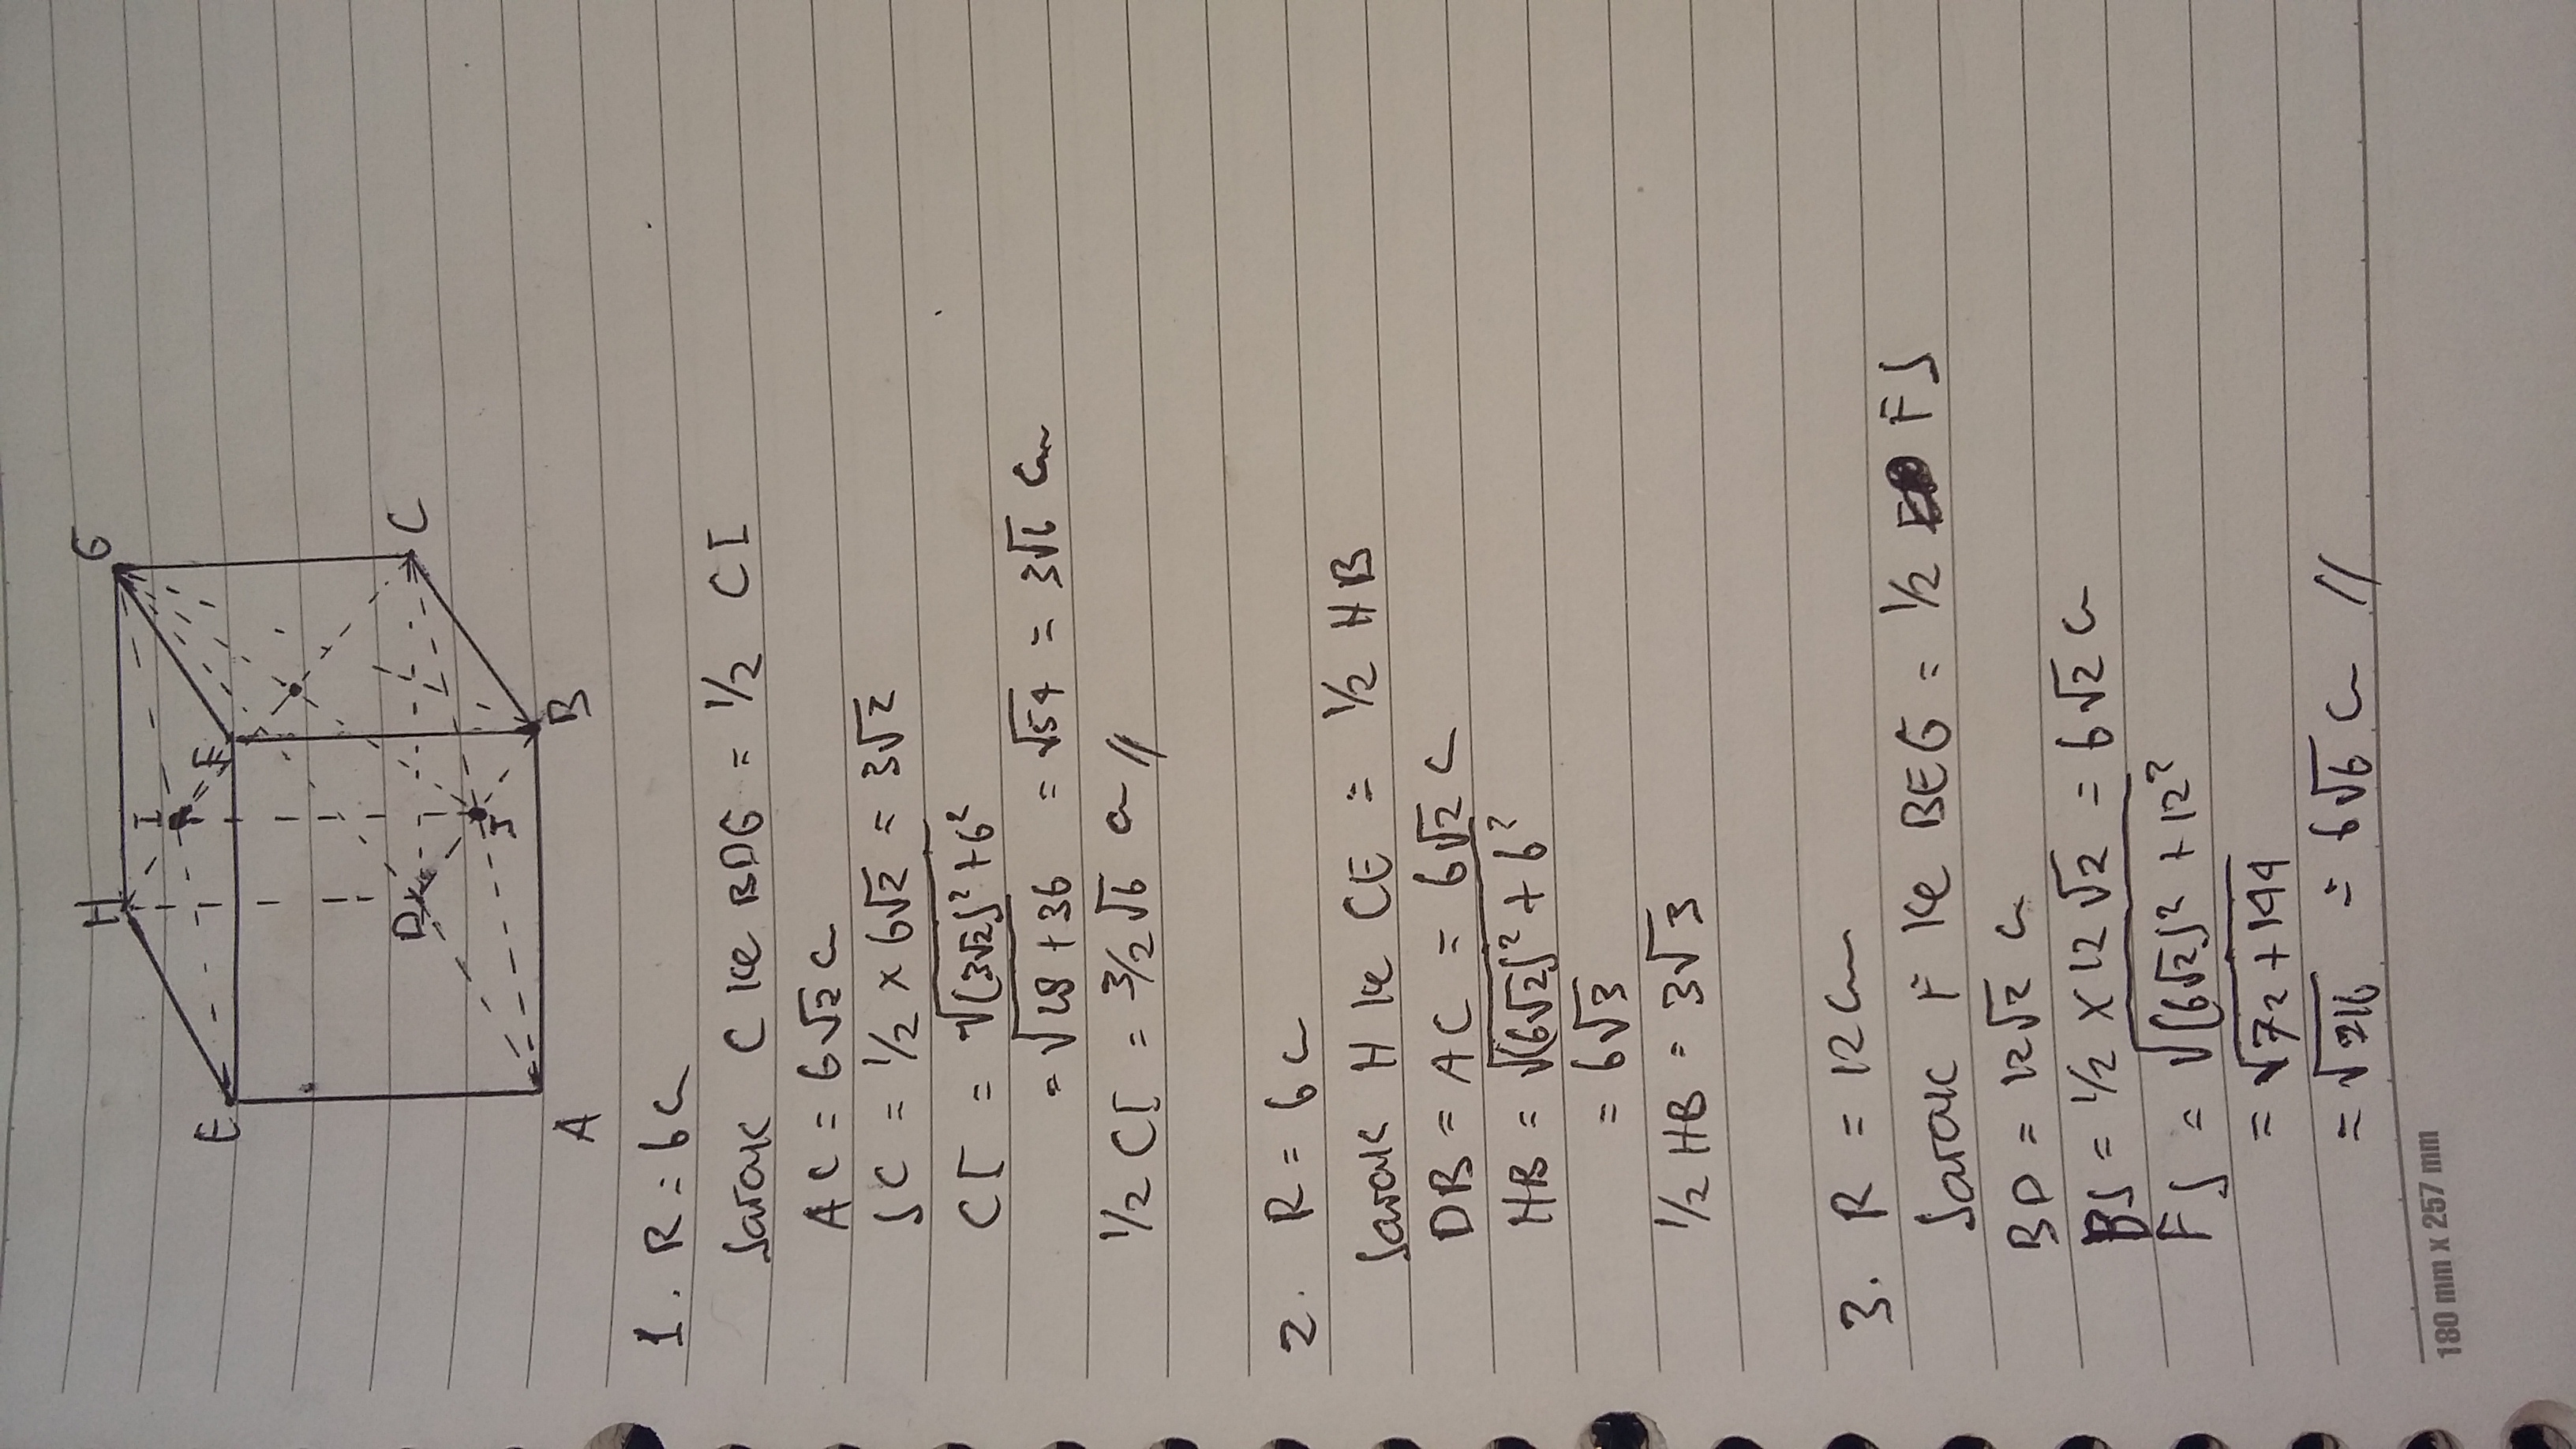 H
G
I
E
F
D
C
J
A
B
1. R = 6 c
Jarak C ke BDG = 1/2 CI
AC = 6√2 c
JC = 1/2 x 6√2 = 3√2
CI = √(3√2)² + 6²
= √18 + 36 = √54 = 3√6 cm
1/2 CI = 3/2 √6 c //
2. R = 6 c
Jarak H ke CE = 1/2 HB
DB = AC = 6√2 c
HB = √(6√2)² + 6²
= 6√3
1/2 HB = 3√3
3. R = 12 cm
Jarak F ke BEG = 1/2 FJ
BD = 12√2 c
BJ = 1/2 x 12√2 = 6√2 c
FJ = √(6√2)² + 12²
= √72 + 144
= √216 = 6√6 c //
180 mm x 257 mm